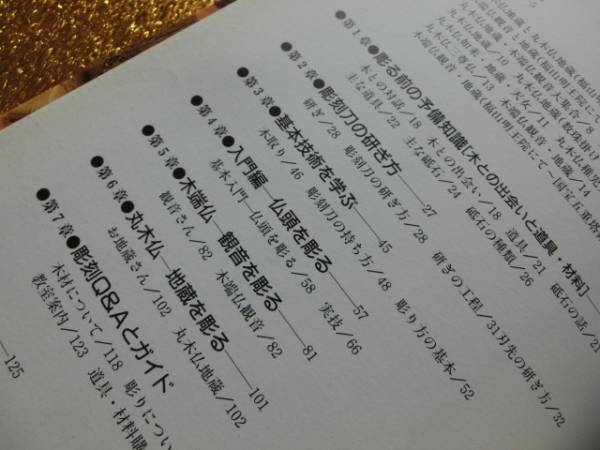 5
仏地蔵と丸木仏地蔵(福山明王院にて
丸木仏地蔵/10
丸木仏三尊仏/13
●第1章●彫る前の予備知識[木との出会いと道具・材料]
木との対話/18 木との出会い/18 道具/21 砥石の話/21
主な道具/22 主な砥石/24 砥石の種類/26
●第2章●彫刻刀の研ぎ方 27
研ぎ/28 彫刻刀の研ぎ方/28 研ぎの工程/31 月先の研ぎ方/32
●第3章●基本技術を学ぶ 45
木取り/46 彫刻刀の持ち方/48 彫り方の基本/52
●第4章●入門編―仏頭を彫る 57
基本入門―仏頭を彫る/58 実技/66
●第5章●木端仏―観音を彫る 81
観音さん/82 木端仏観音/82
●第6章●丸木仏―地蔵を彫る 101
お地蔵さん/102 丸木仏地蔵/102
●第7章●彫刻Q&Aとガイド
木材について/118 彫りについ
教室案内/123 道具・材料
125